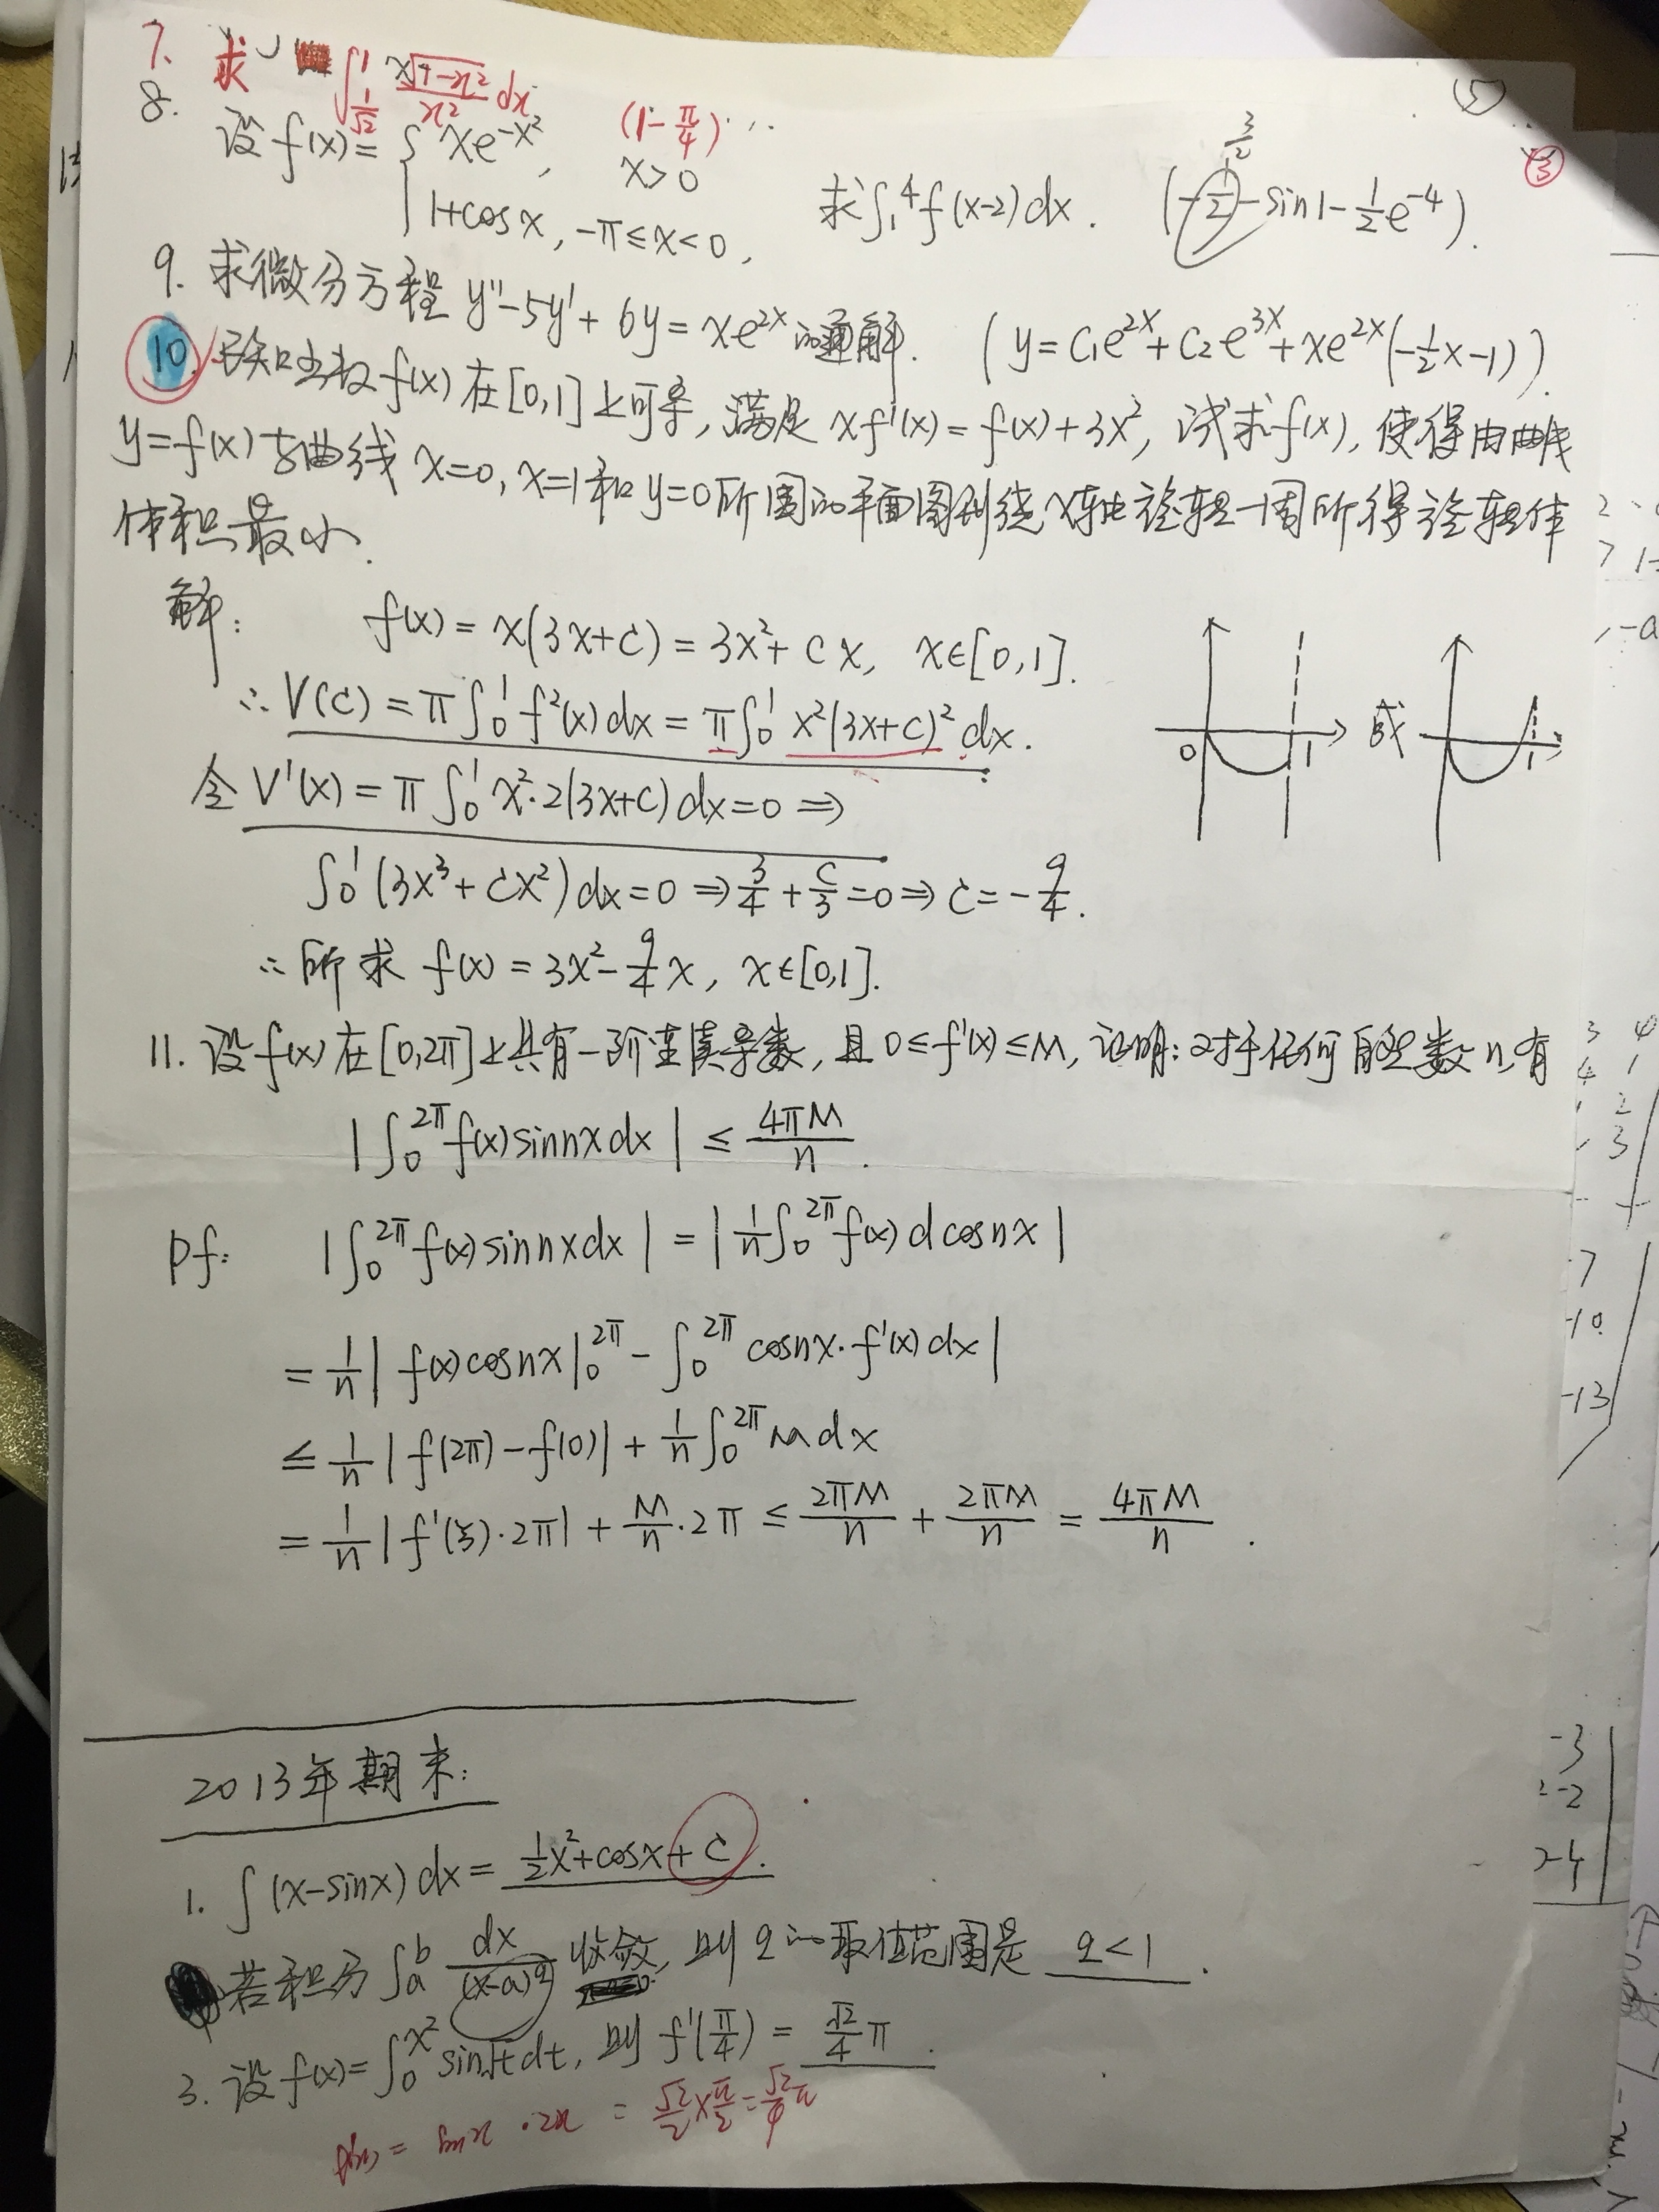 7. 求 ∫_{1/√2}^1 √(1-x²)/x² dx (1-π/4)
8. 设 f(x)= { xe^{-x²}, x>0
1+cosx, -π≤x<0, 求∫_1^4 f(x-2)dx. (-1/2-sin1-1/2e^{-4}). 3/2
⑤
③
9. 求微分方程 y''-5y'+6y=xe^{2x}的通解. (y=C₁e^{2x}+C₂e^{3x}+xe^{2x}(-1/2x-1)).
10. 函数f(x)在[0,1]上可导,满足 xf'(x)=f(x)+3x²,试求f(x),使得由曲线
y=f(x)与曲线 x=0,x=1和y=0所围的平面图形绕x轴旋转一周所得旋转体
体积最小.
解: f(x)=x(3x+C)=3x²+Cx, x∈[0,1].
∴V(C)=π∫_0^1 f²(x)dx=π∫_0^1 x²(3x+C)²dx.
0 1 或 1
令V'(x)=π∫_0^1 x²·2(3x+C)dx=0⇒
∫_0^1(3x³+Cx²)dx=0⇒3/4+C/3=0⇒C=-9/4.
∴所求 f(x)=3x²-9/4x, x∈[0,1].
11. 设f(x)在[0,2π]上具有一阶连续导数,且0≤f'(x)≤M,证明:对于任何自然数n,有
|∫_0^{2π}f(x)sinnxdx|≤4πM/n.
Pf: |∫_0^{2π}f(x)sinnxdx|=|1/n∫_0^{2π}f(x)dcosnx|
=1/n|f(x)cosnx|_0^{2π}-∫_0^{2π}cosnx·f'(x)dx|
≤1/n|f(2π)-f(0)|+1/n∫_0^{2π}Mdx
=1/n|f'(ξ)·2π|+M/n·2π≤2πM/n+2πM/n=4πM/n.
2013年期末:
1. ∫(x-sinx)dx=1/2x²+cosx+C.
若积分∫_a^b dx/(x-a)^q 收敛,则q的取值范围是 q<1.
3. 设f(x)=∫_0^{x²}sin√t dt,则f'(π/4)=√2/4π.
f'(x)=sinx·2x=√2/2×π/2=√2/4π